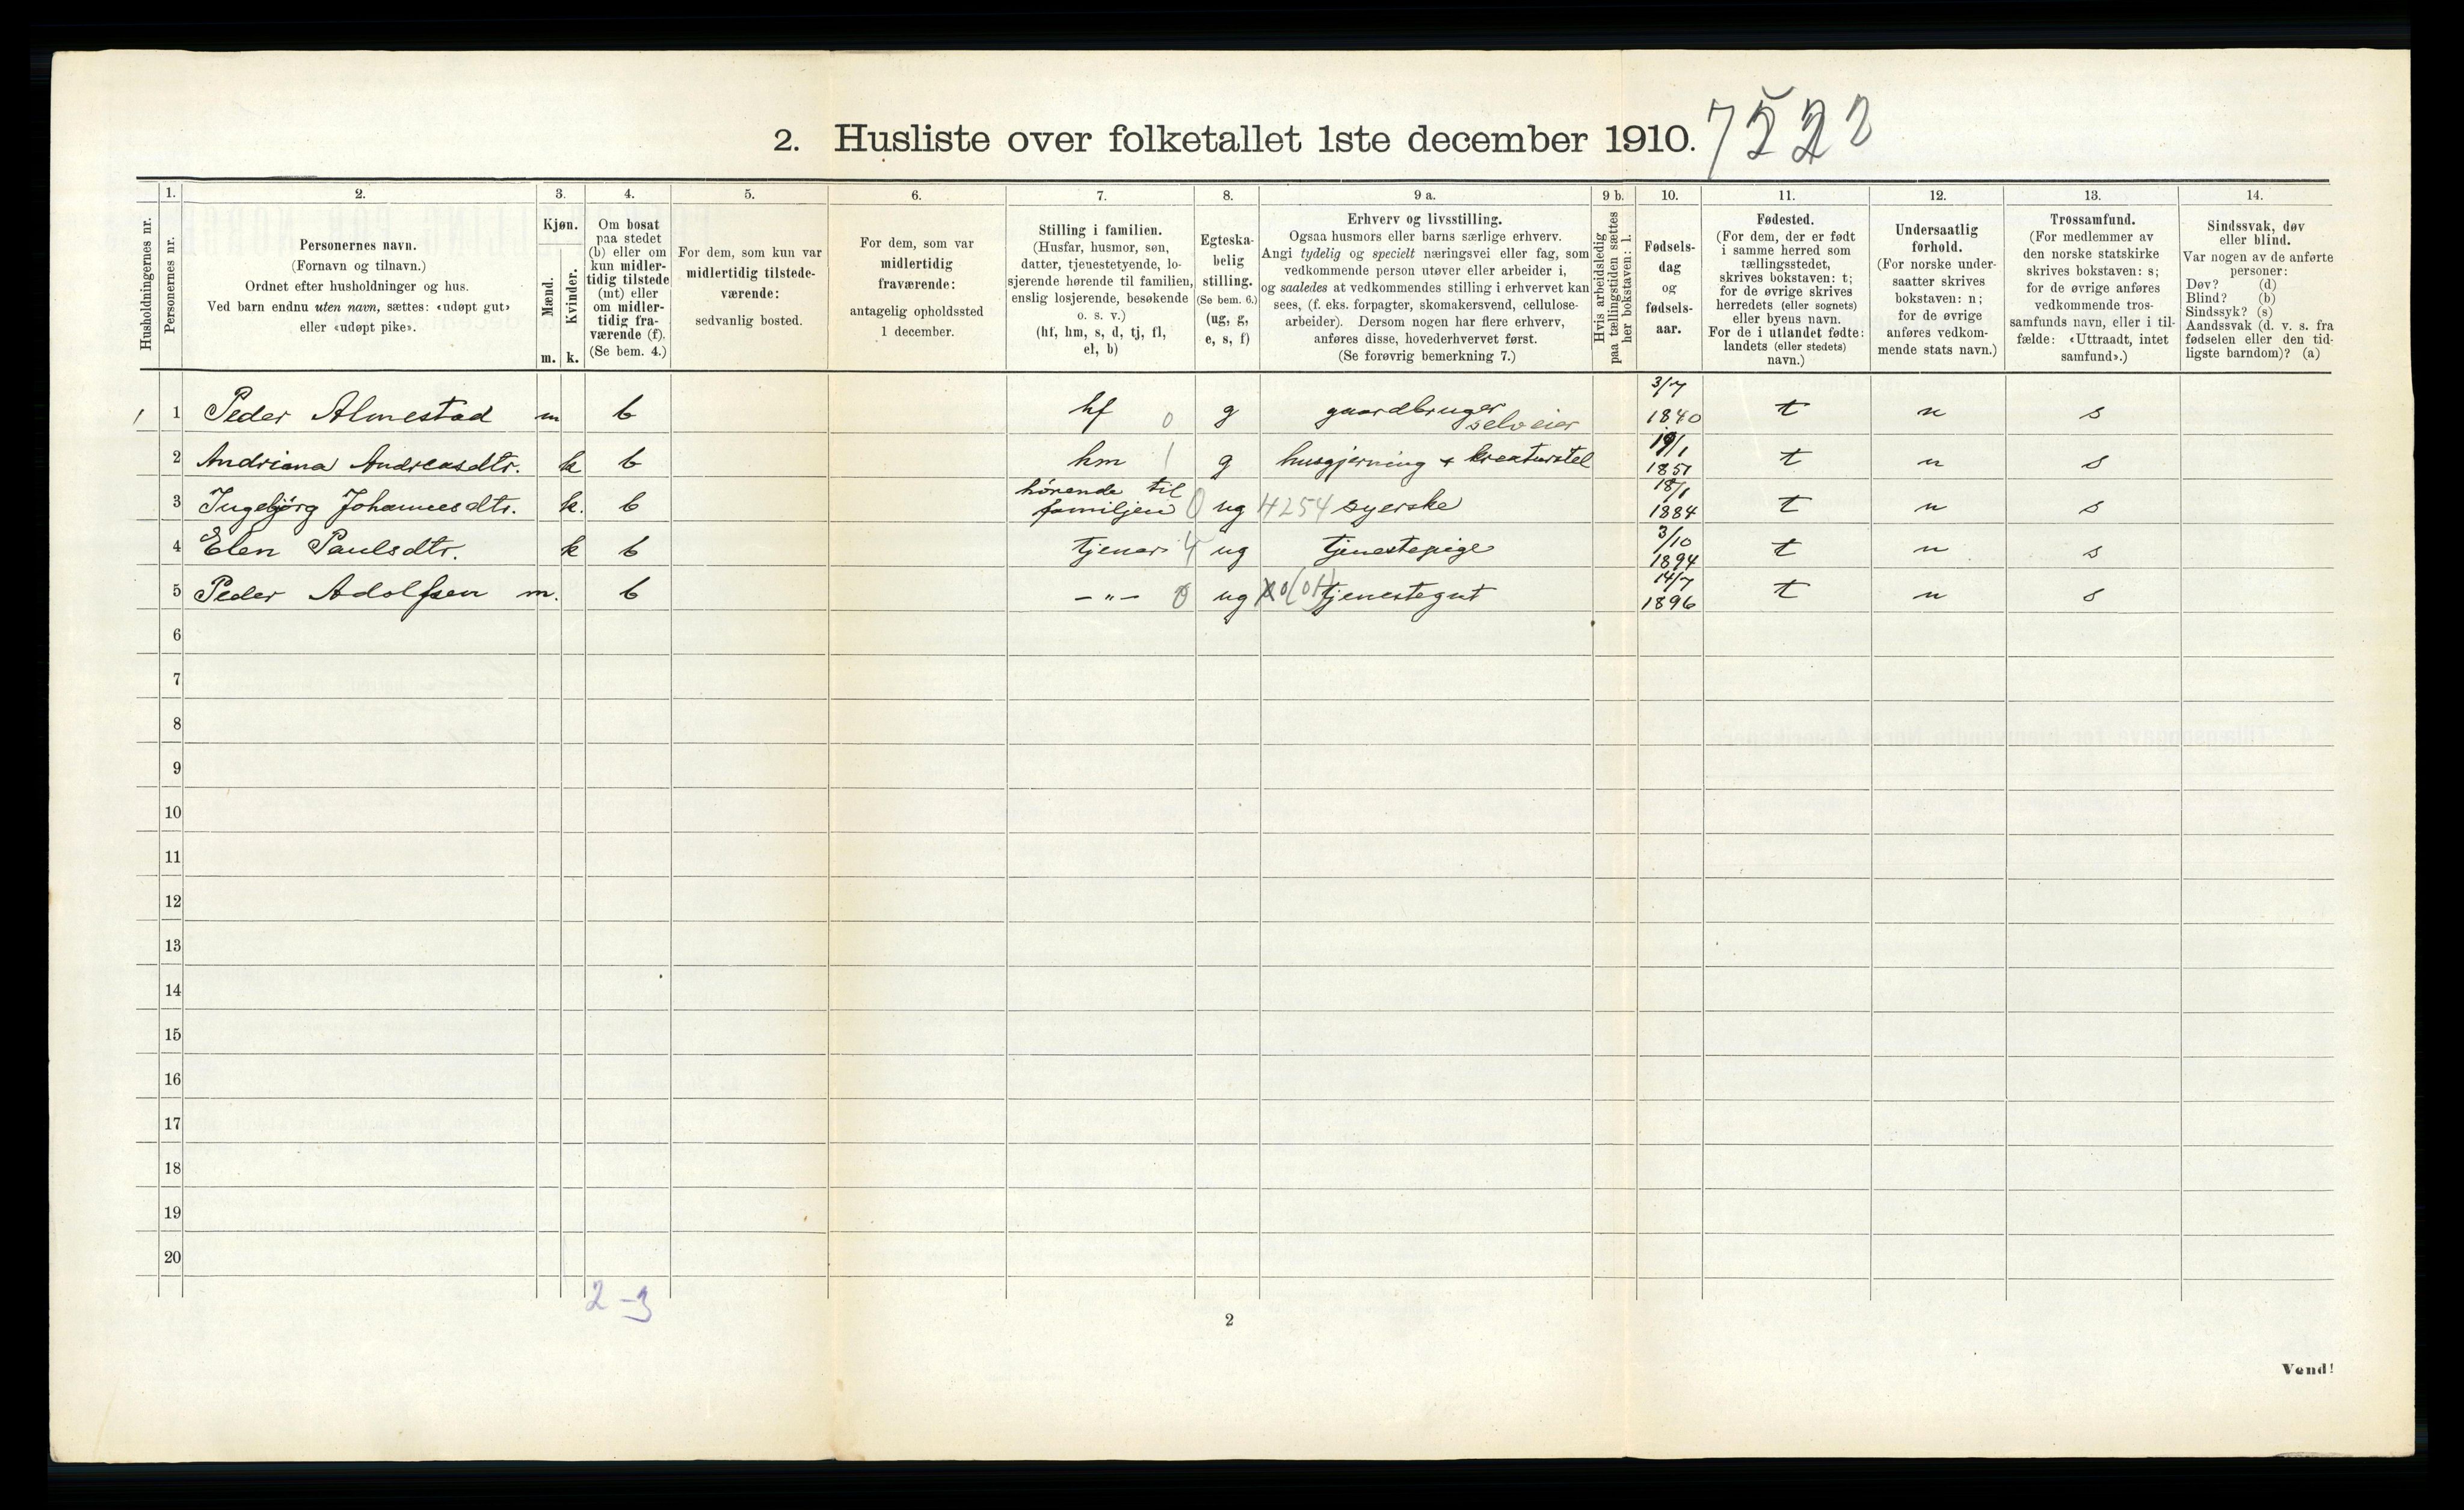 2. Husliste over folketallet 1ste december 1910.
1. 2. 3. 4. 5. 6. 7. 8. 9 a. 9 b. 10. 11. 12. 13. 14.
Husholdningernes nr.
Personernes nr.
Personernes navn.
(Fornavn og tilnavn.)
Ordnet efter husholdninger og hus.
Ved barn endnu uten navn, sættes: «udøpt gut»
eller «udøpt pike».
Kjøn.
Mænd.
Kvinder.
m. k.
Om bosat
paa stedet
(b) eller om
kun midler-
tidig tilstede
(mt) eller
om midler-
tidig fra-
værende (f).
(Se bem. 4.)
For dem, som kun var
midlertidig tilstede-
værende:
sedvanlig bosted.
For dem, som var
midlertidig
fraværende:
antagelig opholdssted
1 december.
Stilling i familien.
(Husfar, husmor, søn,
datter, tjenestetyende, lo-
sjerende hørende til familien,
enslig losjerende, besøkende
o. s. v.)
(hf, hm, s, d, tj, fl,
el, b)
Egteska-
belig
stilling.
(Se bem. 6.)
(ug, g,
e, s, f)
Erhverv og livsstilling.
Ogsaa husmors eller barns særlige erhverv.
Angi tydelig og specielt næringsvei eller fag, som
vedkommende person utøver eller arbeider i,
og saaledes at vedkommendes stilling i erhvervet kan
sees, (f. eks. forpagter, skomakersvend, cellulose-
arbeider). Dersom nogen har flere erhverv,
anføres disse, hovederhvervet først.
(Se forøvrig bemerkning 7.)
Hvis arbeidsledig
paa tællingstiden sættes
her bokstaven: l.
Fødsels-
dag
og
fødsels-
aar.
Fødested.
(For dem, der er født
i samme herred som
tællingsstedet,
skrives bokstaven: t;
for de øvrige skrives
herredets (eller sognets)
eller byens navn.
For de i utlandet fødte:
landets (eller stedets)
navn.)
Undersaatlig
forhold.
(For norske under-
saatter skrives
bokstaven: n;
for de øvrige
anføres vedkom-
mende stats navn.)
Trossamfund.
(For medlemmer av
den norske statskirke
skrives bokstaven: s;
for de øvrige anføres
vedkommende tros-
samfunds navn, eller i til-
fælde: «Uttraadt, intet
samfund».)
Sindssvak, døv
eller blind.
Var nogen av de anførte
personer:
Døv? (d)
Blind? (b)
Sindssyk? (s)
Aandssvak (d. v. s. fra
fødselen eller den tid-
ligste barndom)? (a)
1 1 Peder Almestad m b hf 0 g gaardbruger selveier 3/7 1840 t n s
2 Andriana Andreasdtr. k b hm 1 g husgjerning + kreaturstel 19/1 1851 t n s
3 Ingebjørg Johannesdtr. k. b hörende til familjen 0 ug 4254 syerske 18/1 1884 t n s
4 Elen Paulsdtr. k b tjener 4 ug tjenestepige 3/10 1894 t n s
5 Peder Adolfsen m. b –"– 0 ug tjenestegut 14/7 1896 t n s
6
7
8
9
10
11
12
13
14
15
16
17
18
19
20
2-3
2
Vend!